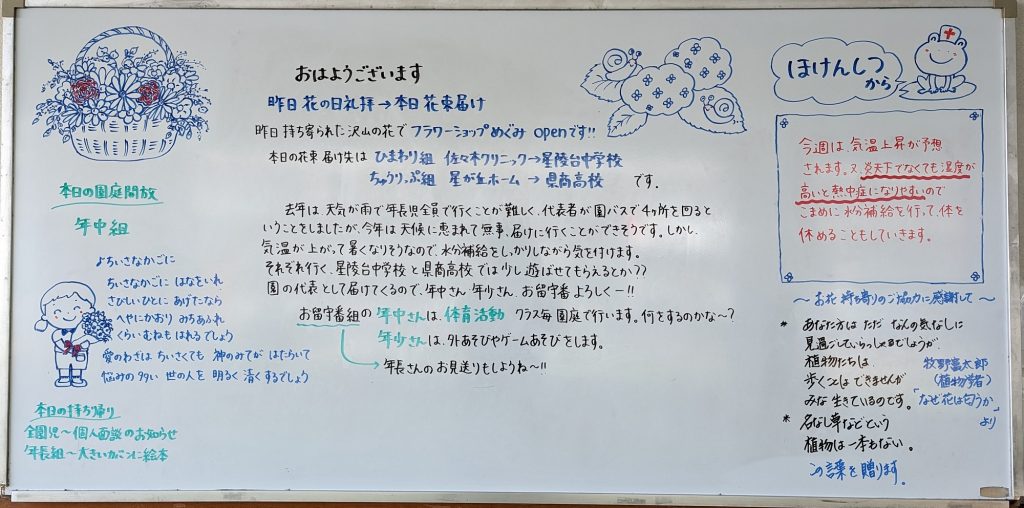 おはようございます
昨日 花の日礼拝→本日 花束届け
昨日 持ち寄られた沢山の花で フラワーショップめぐみ openです!!
本日の花束 届け先は ひまわり組 佐々木クリニック→星陵台中学校
ちゅうりっぷ組 星が丘ホーム → 県商高校 です。
去年は 天気が雨で年長児全員で行くことが難しく、代表者が園バスで4ヶ所を回ると
いうことをしましたが、今年は天候に恵まれて無事、届けに行くことができそうです。しかし、
気温が上がって暑くなりそうなので、水分補給をしっかりしながら気を付けます。
それぞれ行く、星陵台中学校と県商高校では少し遊ばせてもらえるとか??
園の代表として届けてくるので、年中さん、年少さん、お留守番よろしくー!!
お留守番組の 年中さんは、体育活動 クラス毎 園庭で行います。何をするのかな〜?
年少さんは、外あそびやゲームあそびをします。
年長さんのお見送りもしようね〜!!
本日の園庭開放
年中組
よちいさなかごに
ちいさなかごに はなをいれ
さびしいひとに あげたなら
へやにかおり みちあふれ
くらいむねも はれるでしょう
愛のわざは ちいさくても 神のみてが はたらいて
悩みの多い 世の人を 明るく 清くするでしょう
本日の持ち帰り
全園児〜個人面談のお知らせ
年長組〜大きいカバンに絵本
ほけんしつ
から
今週は 気温上昇が予想
されます。又、炎天下でなくても湿度が
高いと熱中症になりやすいので
こまめに水分補給を行って、体を
休めることもしていきます。
〜お花 持ち寄りのご協力に感謝して〜
* あなた方は ただ なんの気なしに
見過ごしていらっしゃるでしょうが、
植物たちは
歩くことは できませんが
みな 生きているのです。
* 名なし草などという
植物は 一本もない。
牧野富太郎
(植物学者)
「なぜ花は匂うか」
より
この言葉を贈ります。